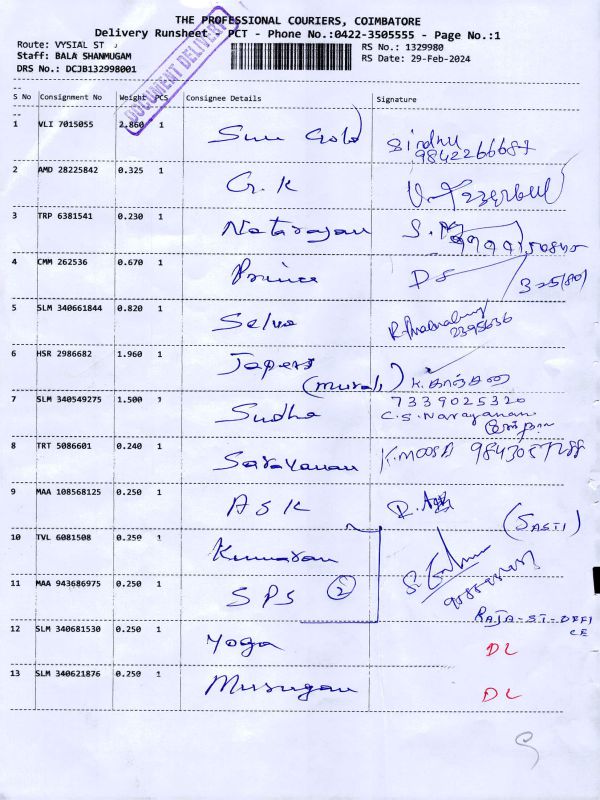 THE PROFESSIONAL COURIERS, COIMBATORE
Delivery Runsheet - PCT - Phone No.:0422-3505555 - Page No.:1
Route: VYSIAL ST
RS No.: 1329980
Staff: BALA SHANMUGAM
RS Date: 29-Feb-2024
DRS No.: DCJB132998001
DOCUMENT DELIVERY
S No Consignment No Weight PCS Consignee Details Signature
1 VLI 7015055 2.860 1 Sun Gold Sindhu
9842266687
2 AMD 28225842 0.325 1 G.K
3 TRP 6381541 0.230 1 Natarajan
4 CMM 262536 0.670 1 Prince DS
5 SLM 340661844 0.820 1 Selva
2395636
6 HSR 2986682 1.960 1 Japers
(Murali)
7 SLM 340549275 1.500 1 Sudha 7339025320
C.S. Narayanan
8 TRT 5086601 0.240 1 Saravanan K.MOOSA
9 MAA 108568125 0.250 1 ASK
(SASTI)
10 TVL 6081508 0.250 1 Kumaran
11 MAA 943686975 0.250 1 SPS 2
RAJA-ST-OFFI
CE
12 SLM 340681530 0.250 1 Yoga DL
13 SLM 340621876 0.250 1 Murugan DL